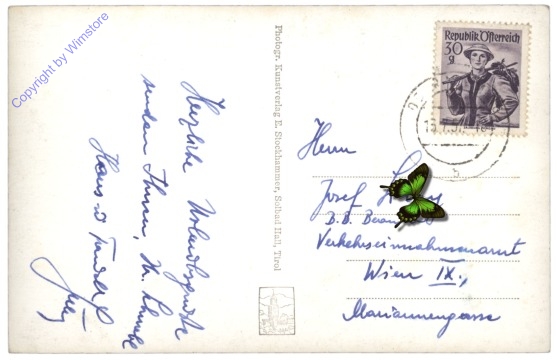 Copyright by Wimstore
Herzliche Urlaubsgrüße
senden Ihnen, Hr.
Hans u.
Photogr. Kunstverlag E. Stockhammer, Solbad Hall, Tirol
Republik Österreich
30
g
Herrn
Josef
B.B.
Verkehrseinnahmenamt
Wien IX.,
Mariannengasse